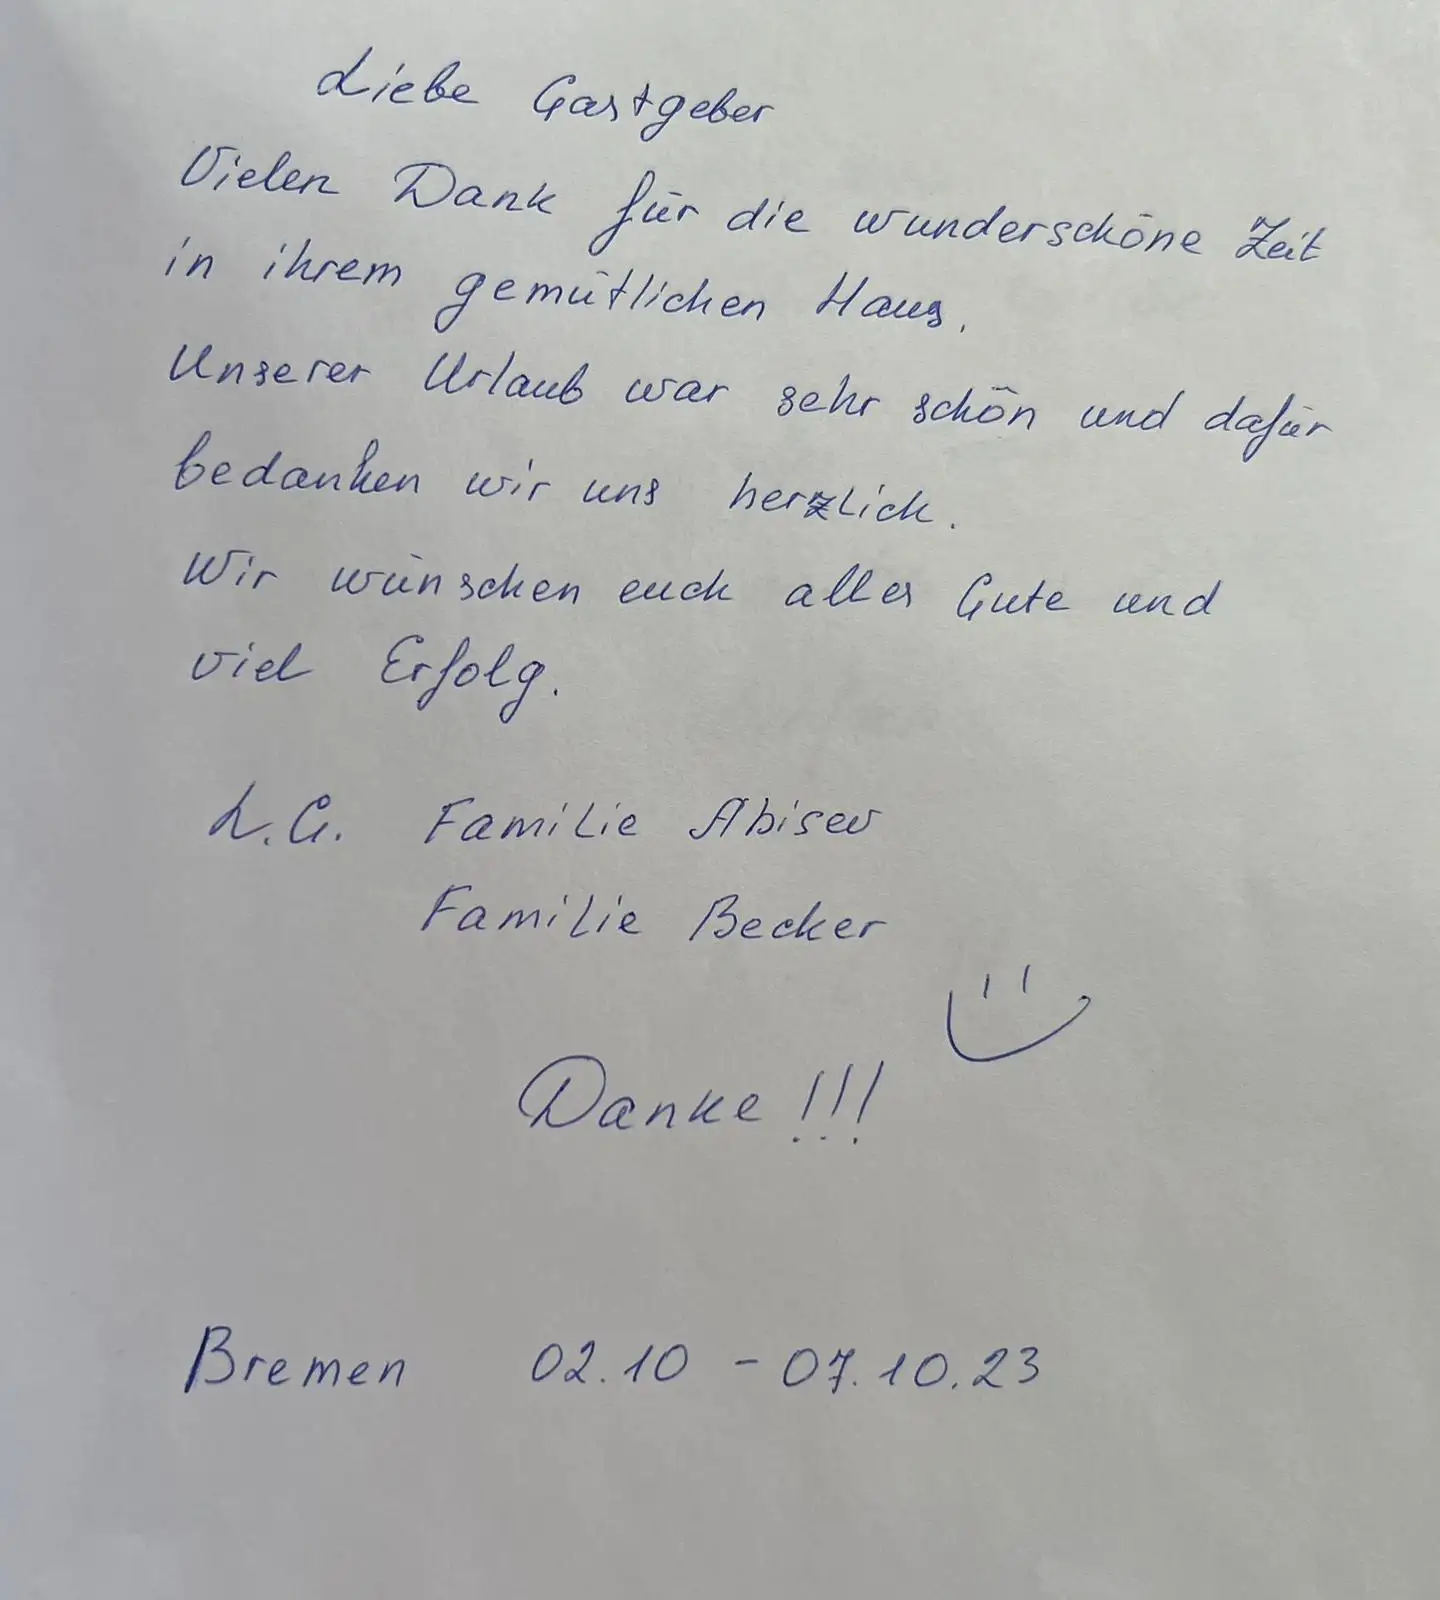 Liebe Gastgeber
Vielen Dank für die wunderschöne Zeit
in ihrem gemütlichen Haus.
Unserer Urlaub war sehr schön und dafür
bedanken wir uns herzlich.
Wir wünschen euch alles Gute und
viel Erfolg.
L.G. Familie Abisev
Familie Becker
Danke!!!
Bremen 02.10 - 07.10.23